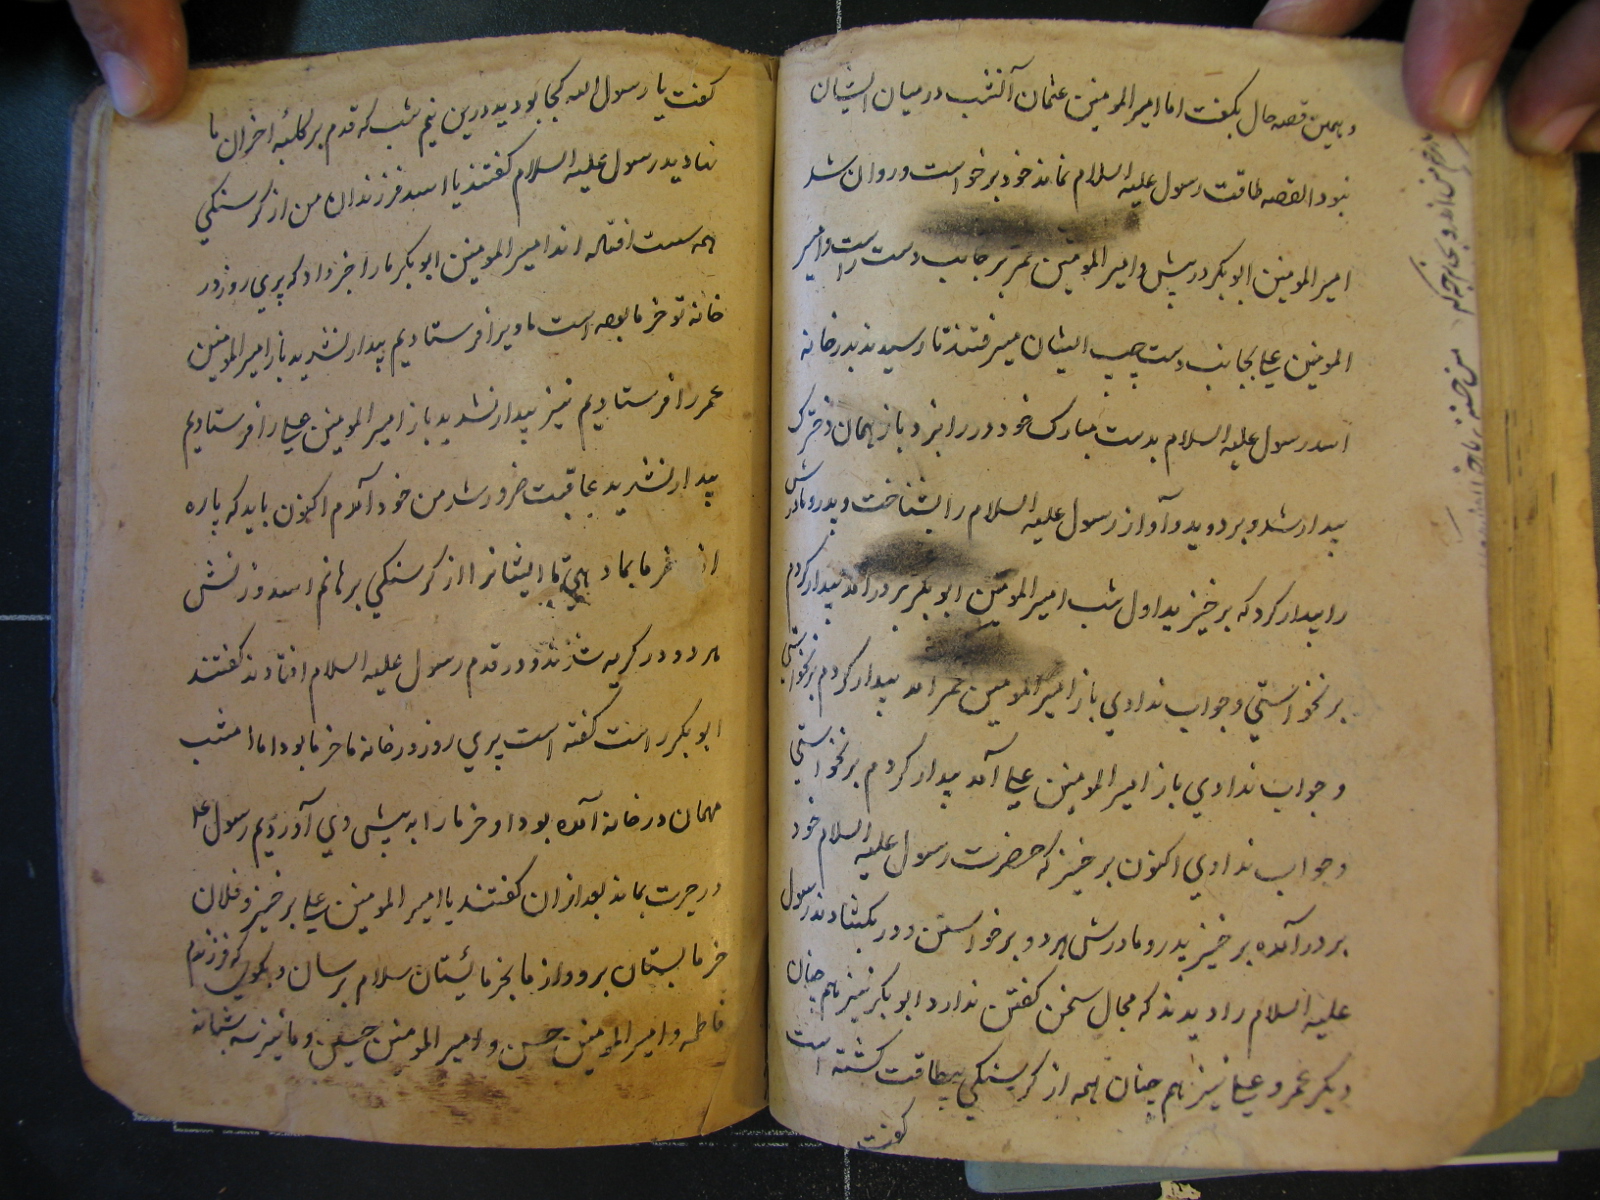 و همین قصه حال بگفت اما امیر المومنین عثمان آنشب درمیان ایشان
نبود القصه طاقت رسول علیه السلام نماند خود برخواست و روان شد
امیر المومنین ابوبکر در پیش و امیر المومنین عمر بر جانب دست راست و امیر
المومنین علی بجانب دست چپ ایشان میرفتند تا رسیدند بدر خانه
اسد رسول علیه السلام بدست مبارک خود در را بزد باز همان دخترک
بیدار شد و بر دوید و آواز رسول علیه السلام را بشناخت و پدر و مادرش
را بیدار کرد که برخیزید اول شب امیر المومنین ابوبکر بر در آمد بیدار کردم
برنخواستی و جواب ندادی باز امیر المومنین عمر آمد بیدار کردم برنخواستی
و جواب ندادی باز امیر المومنین علی آمد بیدار کردم برنخواستی
و جواب ندادی اکنون برخیز که حضرت رسول علیه السلام خود
بر در آمده برخیز پدر و مادرش هر دو برخواستن و در بکشادند رسول
علیه السلام را دیدند که مجال سخن گفتن ندارد ابوبکر نیز هم چنان
دیگر عمر و علی نیز هم چنان همه از گرسنگی بیطاقت گشته است
گفت
گفت یا رسول الله کجا بودید درین نیم شب که قدم بر کلبهٔ احزان ما
نهادید رسول علیه السلام گفتند یا اسد فرزندان من از گرسنگی
همه سست افتاده اند امیر المومنین ابوبکر ما را خبر داد که پری روز در
خانه تو خرما بوده است ما ویرا فرستادیم بیدار نشدید باز امیر المومنین
عمر را فرستادیم نیز بیدار نشدید باز امیر المومنین علی را فرستادیم
بیدار نشدید عاقبت ضرور شد من خود آمدم اکنون باید که پاره
از خرما بما دهی تا ایشانرا از گرسنگی برهانم اسد و زنش
هر دو در گریه شدند و در قدم رسول علیه السلام افتادند گفتند
ابوبکر راست گفته است پری روز در خانه ما خرما بود اما امشب
مهمان در خانه آمده بود او خرما را به پیش وی آوردیم رسول عم
در حیرت بماند بعد ازان گفتند یا امیر المومنین علی برخیز و فلان
خرمابستان برو و از ما بخرمائیستان سلام برسان و بگوی که فرزندم
فاطمه و امیر المومنین حسن و امیر المومنین حسین و ما نیز سه شبانه